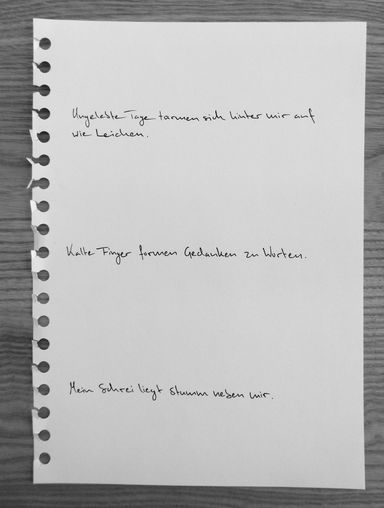 Ungelebte Tage türmen sich hinter mir auf
wie Leichen.
Kalte Finger formen Gedanken zu Worten.
Mein Schrei liegt stumm neben mir.